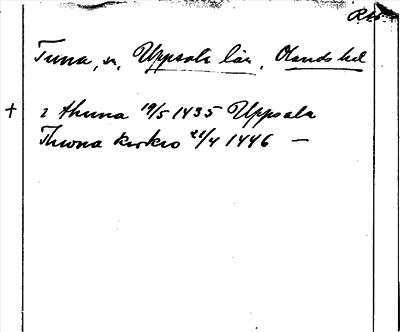 Rko.
Tuna, sn, Uppsala län, Olands hd
+ i thuna 19/5 1435 Uppsala
Thwna kirkio 21/4 1446 —